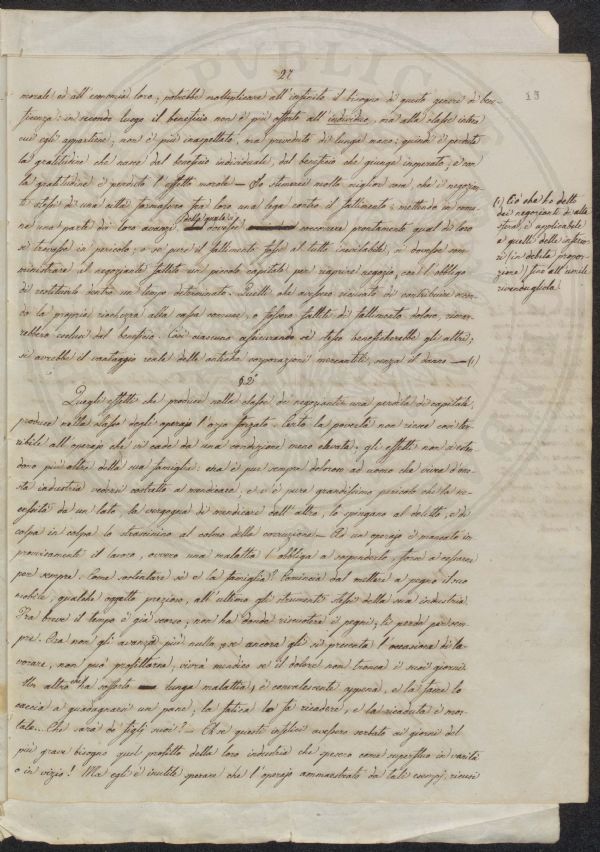 27
13
morale ed all'economia loro; potrebbe moltiplicare all'infinito il bisogno di questo genere di bene-
ficenza: in secondo luogo il beneficio non è più offerto all'individuo, ma alla classe intera
cui egli appartiene, non è più inaspettato, ma preveduto di lunga mano; quindi è perduta
la gratitudine che nasce dal beneficio individuale, dal beneficio che giunge insperato, e con
la gratitudine è perduto l'effetto morale — Io stimerei molto miglior cosa, che i negozian-
ti stessi di una città formassero fra loro una lega contro il fallimento; mettendo in comu-
ne una parte dei loro avanzi, dalla quale si dovesse soccorrere prontamente qual di loro
si trovasse in pericolo, o se pure il fallimento fosse al tutto inevitabile, si dovesse som-
ministrare al negoziante fallito un piccolo capitale per riaprire negozio, con l'obbligo
di restituirlo dentro un tempo determinato. Quelli che avessero ricusato di contribuire
la propria ricchezza alla cassa comune, o fossero falliti di fallimento doloso,
esclusi dal beneficio. Così ciascuno assicurando sè stesso beneficherebbe gli altri;
si avrebbe il vantaggio reale delle antiche corporazioni mercantili, senza il danno — (1)
(1) Ciò che ho detto
dei negozianti di alta
sfera, è applicabile
a quelli delle inferio-
ri (in debita propor-
zione) fino all'umile
rivendugliola
§ 2°
Quegli effetti che produce nella classe de' negozianti una perdita di capitale,
produce nella classe degli operaj l'ozio forzato. Certo la povertà non riesce così ter-
ribile all'operajo che vi cade da una condizione meno elevata; gli effetti non si esten-
dono più oltre della sua famiglia: ma è pur sempre doloroso ad uomo che vivea d'one-
sta industria vedersi costretto a mendicare, e vi è pure grandissimo pericolo che la ne-
cessità da un lato, la vergogna di mendicare dall'altro, lo spingano al delitto, e di
colpa in colpa lo strascinino al colmo della corruzione — Ad un operajo è mancato im-
provvisamente il lavoro, ovvero una malattia l'obbliga a sospenderlo, forse a cessarne
per sempre. Come sostentare sè e la famiglia? Comincia dal mettere a pegno il suo
mobile, qualche oggetto prezioso, all'ultimo gli strumenti stessi della sua industria.
Fra breve il tempo è già scorso, non ha donde riscuotere i pegni; li perde per sem-
pre. Ora non gli avanza più nulla, se ancora gli si presenta l'occasione di la-
vorare, non può profittarne, vivrà mendico se il dolore non tronca i suoi giorni.
Un altro che ha sofferto lunga malattia, è convalescente appena, e la fame lo
caccia a guadagnarsi un pane, la fatica lo fa ricadere, e la ricaduta è mor-
tale... Che sarà de' figli suoi? — Ah se questi infelici avessero serbato ai giorni del
più grave bisogno quel profitto della loro industria che spesero come superfluo in vanità
o in vizio! Ma egli è inutile sperare che l'operajo ammaestrato da tali esempj, ricusi